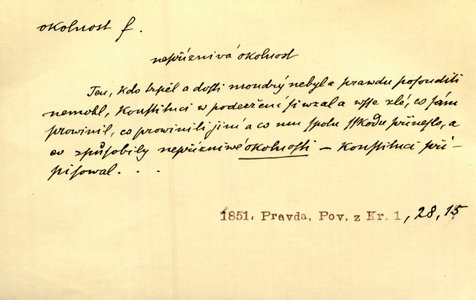 okolnost f.
nepříznivá okolnost
Ten, kdo trpěl a dosti moudrý nebyl a prawdu posouditi
nemohl, Konstituci w podezření si wzal a wše zlé, co sám
prowinil, co prowinili jiní a co mu spolu škodu přineslo, a
co způsobily nepřízniwé okolnosti – Konstituci při-
pisowal . . .
1851. Pravda, Pov. z Kr. 1, 28, 15